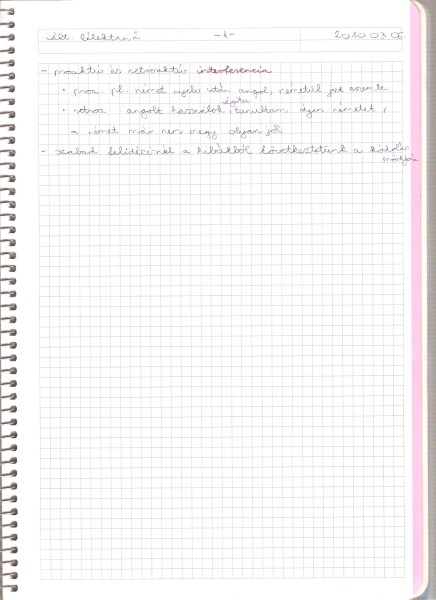 ált. lélektan 2 -4- 2010.03.05
- proaktív és retroaktív interferencia
• proa. pl. német nyelv után angol, németül jut eszembe
• retroa. angolt használok régóta, tanultam régen németet,
a német már nem megy olyan jól
- szabad felidézésnél a hibákból következtetünk a kódolás
módjára